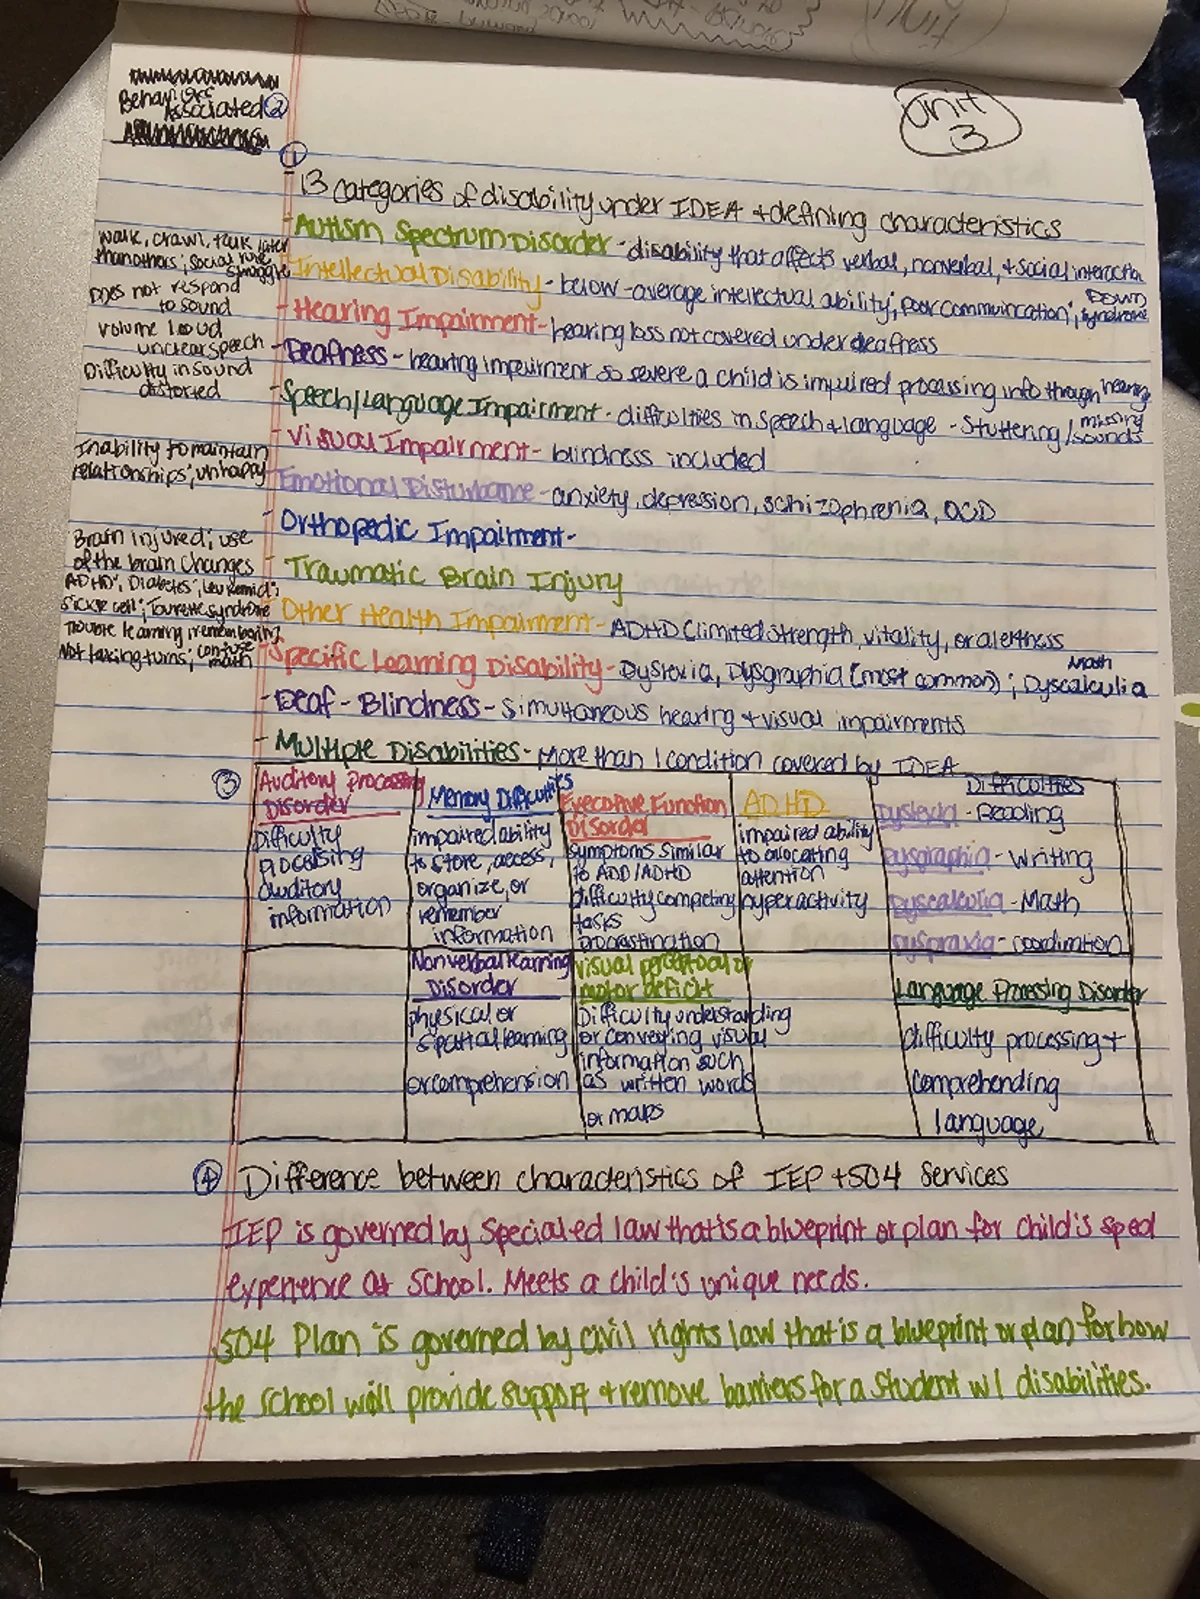 Unit 3
Behaviors Associated ②
①
13 categories of disability under IDEA + defining characteristics
- Autism Spectrum Disorder - disability that affects verbal, nonverbal, + social interaction
walk, crawl, talk later
than others; social rule
struggle
Intellectual Disability - below-average intellectual ability; poor communication; Down syndrome
Does not respond
to sound
- Hearing Impairment - hearing loss not covered under deafness
volume loud
unclear speech
- Deafness - hearing impairment so severe a child is impaired processing info through hearing
Difficulty in sound
distorted
- Speech/Language Impairment - difficulties in speech + language - stuttering / missing sounds
- Visual Impairment - blindness included
Inability to maintain
relationships; unhappy
Emotional Disturbance - anxiety, depression, schizophrenia, OCD
- Orthopedic Impairment -
Brain injured; use
of the brain changes
- Traumatic Brain Injury
ADHD; Diabetes; Leukemia;
Sickle cell; Tourette syndrome
Other Health Impairment - ADHD (limited strength, vitality, or alertness
Trouble learning; remembering
Not taking turns; confuse math
Specific Learning Disability - Dyslexia, Dysgraphia (most common); Math Dyscalculia
- Deaf-Blindness - simultaneous hearing + visual impairments
- Multiple Disabilities - more than 1 condition covered by IDEA
③
Auditory Processing
Disorder
Difficulty
processing
auditory
information
Memory Difficulties
impaired ability
to store, access,
organize, or
remember
information
Executive Function
Disorder
symptoms similar
to ADD/ADHD
difficulty competing
tasks
procrastination
ADHD
impaired ability
to allocating
attention
hyperactivity
Difficulties
Dyslexia - Reading
Dysgraphia - Writing
Dyscalculia - Math
Dyspraxia - coordination
Nonverbal learning
Disorder
physical or
spatial learning
or comprehension
visual perceptual or
motor deficit
Difficulty understanding
or conveying visual
information such
as written words
or maps
Language Processing Disorder
difficulty processing +
comprehending
language
④ Difference between characteristics of IEP + 504 Services
IEP is governed by Special ed law that is a blueprint or plan for child's sped
experience at school. Meets a child's unique needs.
504 Plan is governed by civil rights law that is a blueprint or plan for how
the school will provide support + remove barriers for a student w/ disabilities.